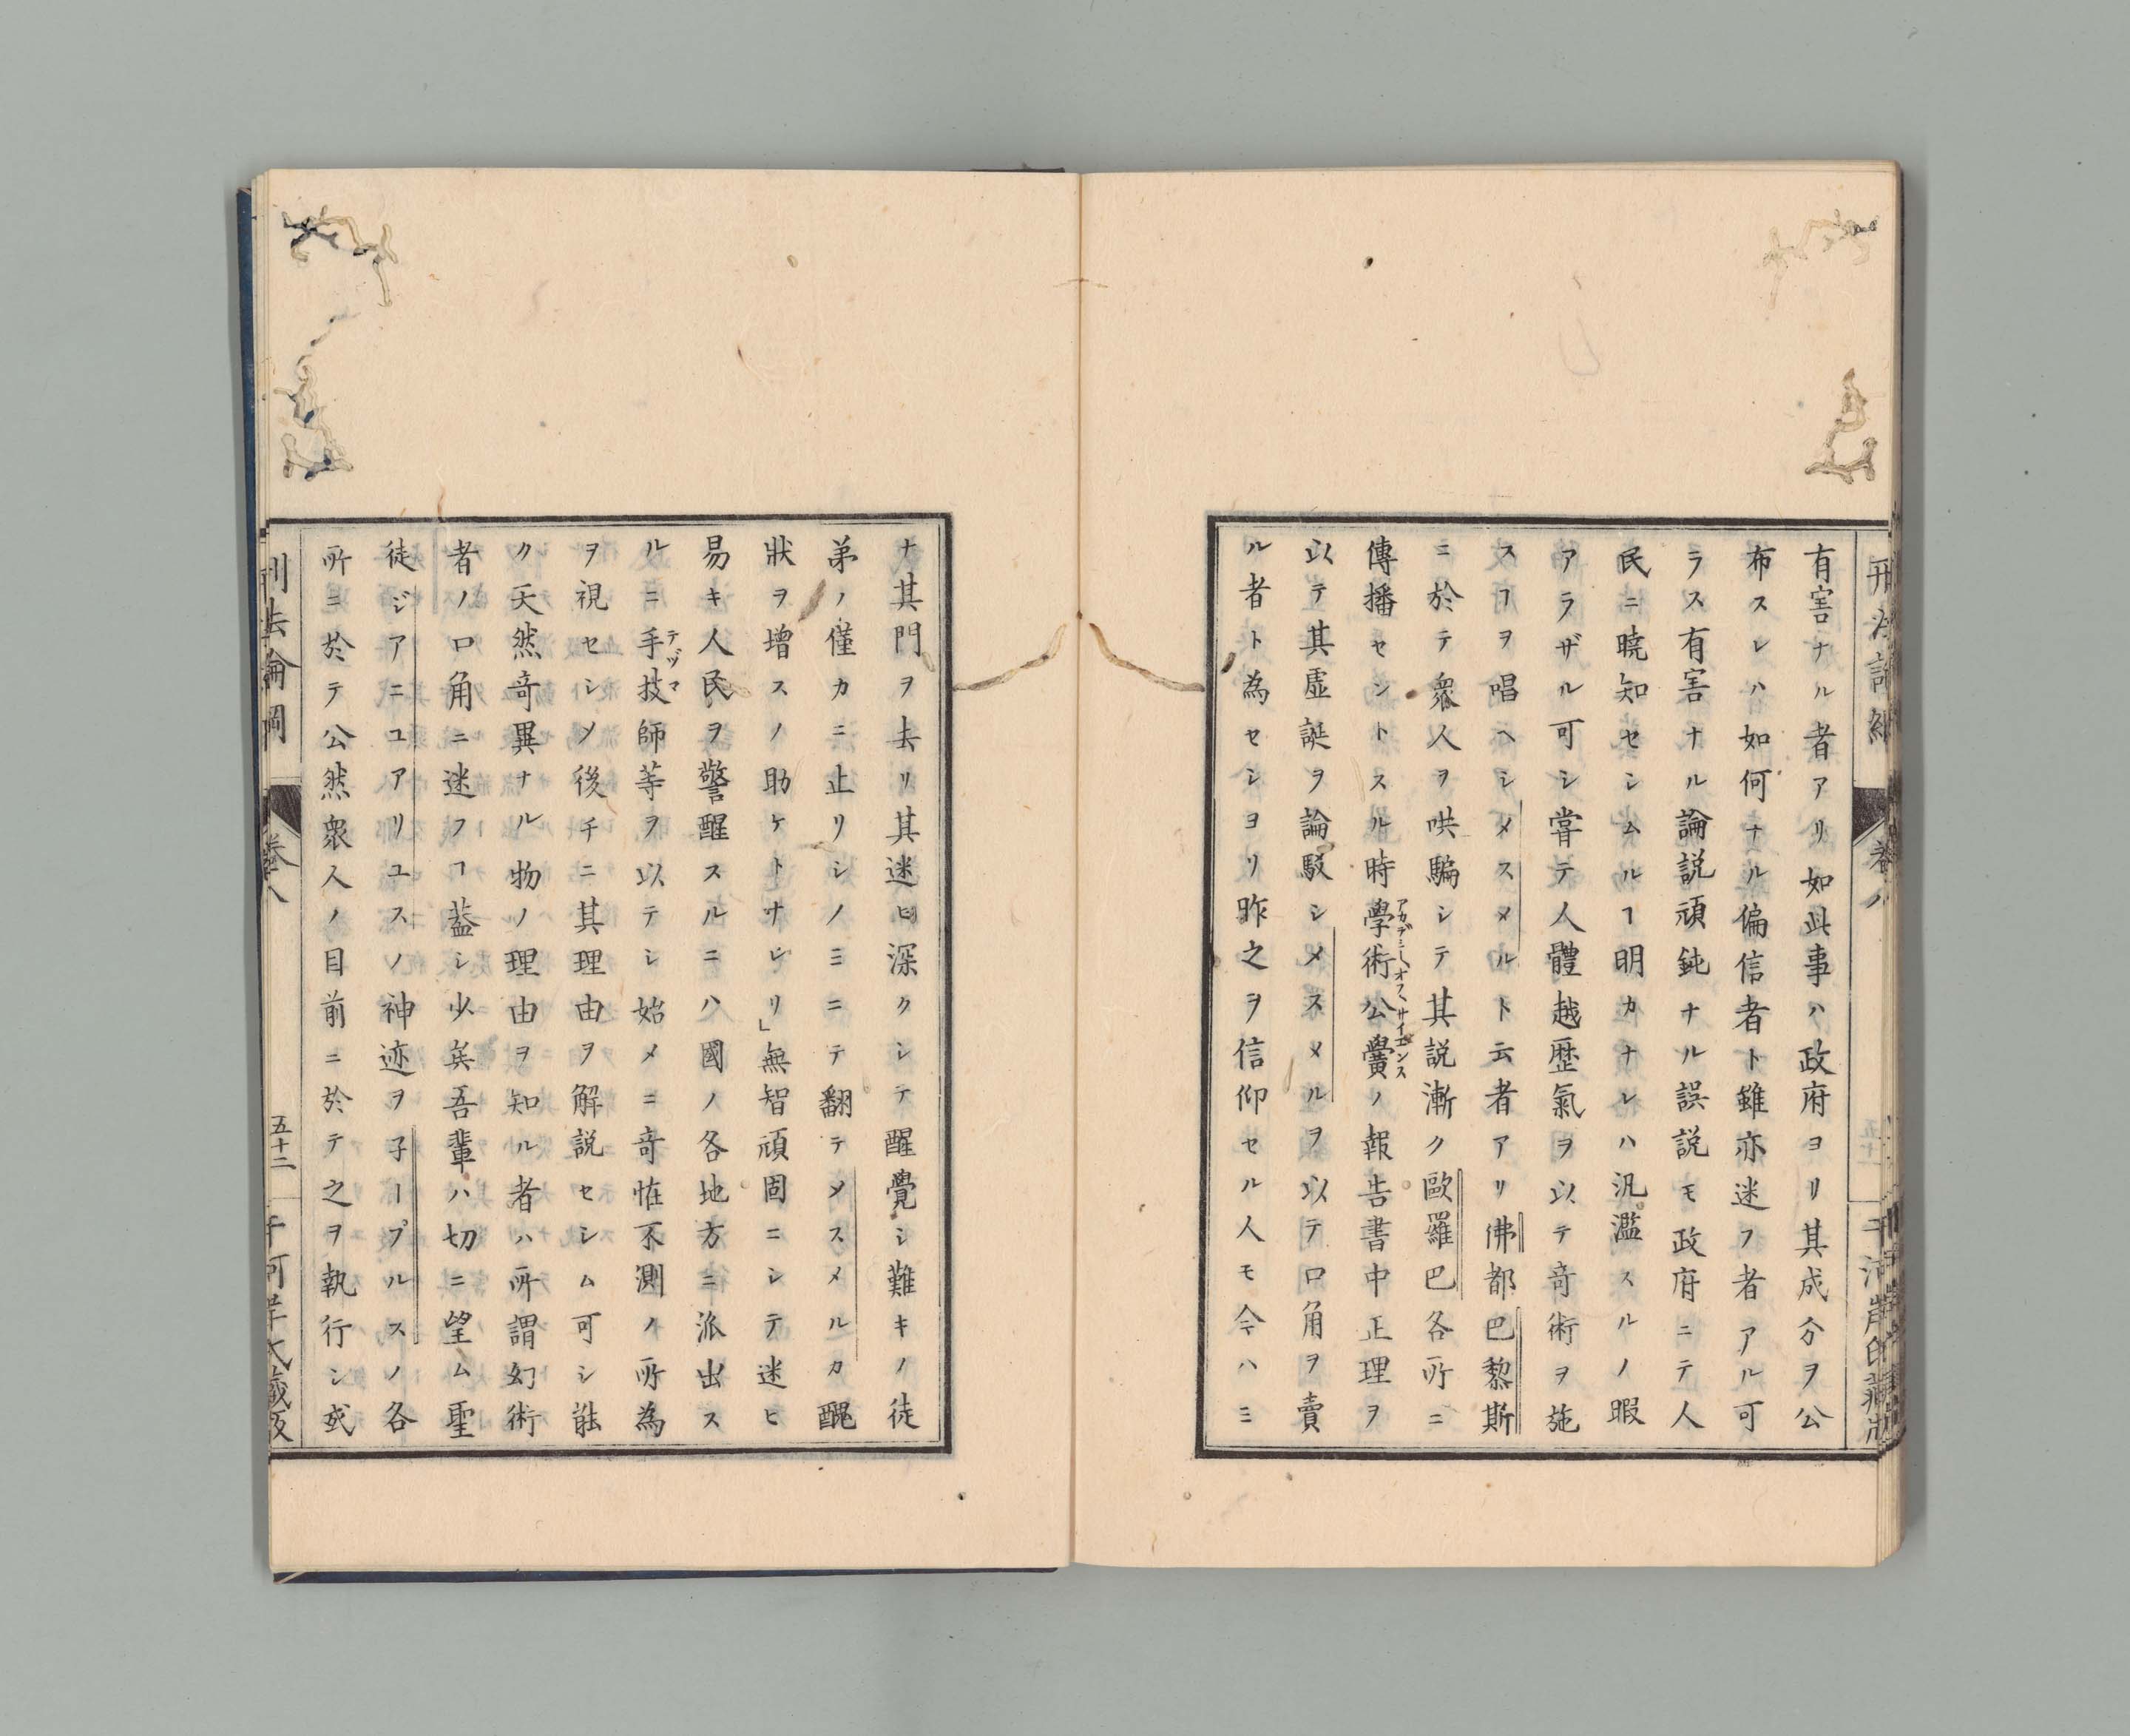 有害ナル者アリ如此事ハ政府ヨリ其成分ヲ公
布スレハ如何ナル偏信者ト雖亦迷フ者アル可
ラス有害ナル論説頑鈍ナル誤説モ政府ニテ人
民ニ曉知セシムルヿ明カナレハ汎濫スルノ暇
アラザル可シ甞テ人體越歴氣ヲ以テ竒術ヲ施
スヿヲ唱ヘシメスメルト云者アリ佛都巴黎斯
ニ於テ衆人ヲ哄騙シテ其説漸ク歐羅巴各所ニ
傳播セントスル時學術公黌ノ報告書中正理ヲ
アカデミーオフサイエンス
以テ其虚誕ヲ論駁シメスメルヲ以テ口角ヲ賣
ル者ト為セシヨリ昨之ヲ信仰セル人モ今ハミ
ナ其門ヲ去リ其迷ヒ深クシテ醒覺シ難キノ徒
弟ノ僅カニ止リシノミニテ翻テメスメルカ醜
狀ヲ增スノ助ケトナレリ」無智頑固ニシテ迷ヒ
易キ人民ヲ警醒スルニハ國ノ各地方ニ派出ス
ルニ手技師等ヲ以テシ始メニ竒恠不測ノ所為
テヅマ
ヲ視セシメ後チニ其理由ヲ解説セシム可シ能
ク天然竒異ナル物ノ理由ヲ知ル者ハ所謂幻術
者ノ口角ニ迷フヿ葢シ少矣吾輩ハ切ニ望ム聖
徒ジアニユアリユスノ神迹ヲ子ープルスノ各
所ニ於テ公然衆人ノ目前ニ於テ之ヲ執行シ或
刑法論綱
卷八
五十二